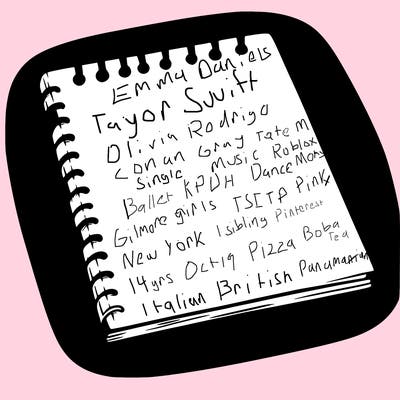 Emma Daniels
Tayor Swift
Olivia Rodrigo
Conan Gray Tate M
Single Music Roblox
Ballet KPDH Dance Moms
Gilmore girls TSITP Pink
New York 1 sibling Pinterest
14yrs Oct19 Pizza Boba Tea
Italian British Panamanian